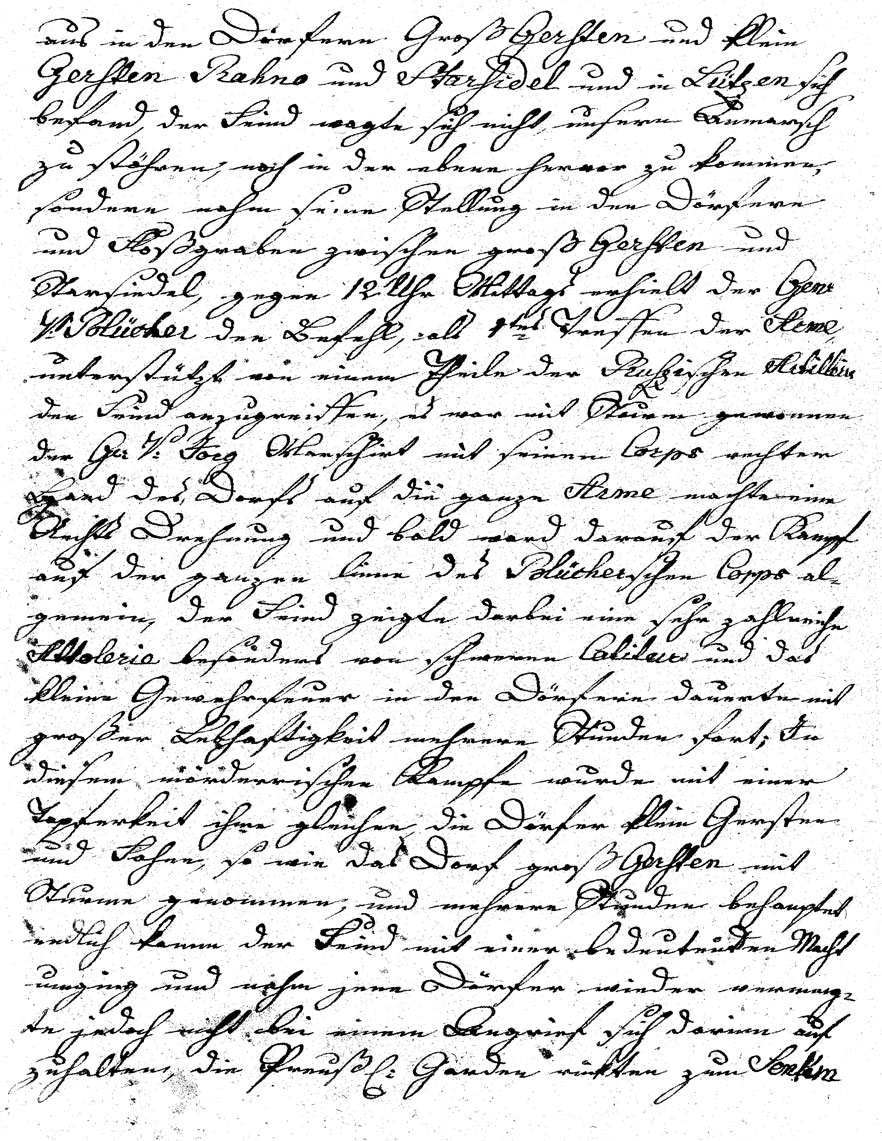 aus in den Dörfern Groß Gersten und klein
Gersten Rahno und Starsidel und in Lützen sich
befand, der Feind wagte sich nicht, unsern Anmarsch
zu stöhren, noch in der ebene hervor zu kommen,
sondern nahm seine Stellung in den Dörfern
und Floßgraben zwischen groß Gersten und
Starsiedel, gegen 12 Uhr Mittags erhielt der Genr
V. Blücher den Befehl, als 1tes Treffen der Arme
unterstützt von einem Theile der Rußischen Artillerie
den Feind anzugreiffen, es war mit Sturm genommen
der Ge V: Jorg Marschirt mit seinen Corps rechter
Hand des Dorfs auf die ganze Arme machte eine
Rechts Drehnung und bald ward darauf der Kampf
auf der ganzen linne des Blücherschen Corps al-
gemein, der Feind zeigte darbei eine sehr zahlreiche
Attolerie besonders von schweren Caliber und das
kleine Gewehrfeuer in den Dörfern dauerte mit
großer Lebhaftigkeit mehrere Stunden fort; In
diesem mörderrischen Kampfe wurde mit einer
Tapferkeit ihne gleichen, die Dörfer klein Gersten
und Rahne, so wie das Dorf groß Gersten mit
Sturme genommen, und mehrere Stunden behauptet
endlich kamm der Feind mit einer bedeutentten Macht
umging und nahm jene Dörfer wieder vermog-
te jedoch nicht bei einem Angrief sich darinn auf
zuhalten, die Preuß: Garden rückten zum